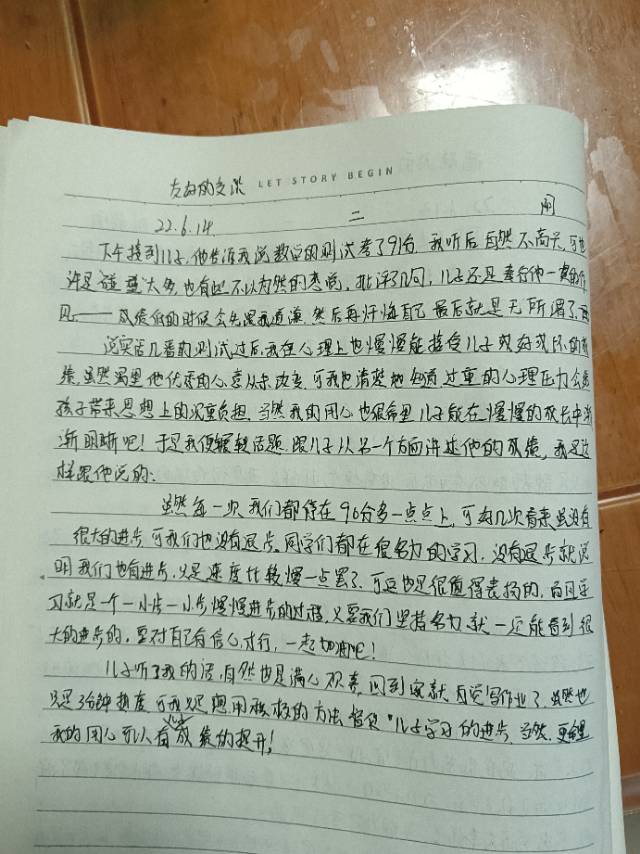 友好的交谈 LET STORY BEGIN
22.6.14 二 阴
下午接到儿子,他告诉我说数学的测试考了91分.我听后自然不高兴,可也
许是碰壁太多,也有些不以为然的态度,批评了几句,儿子还是奉行他一贯的作
风——成绩低的时候会先跟我道谦.然后再忏悔自己最后就是无所谓了.
说实话几番的测试过后,我在心理上也慢慢能接受儿子或好或坏的成
绩,虽然渴望他优秀的心意从未改变,可我也清楚地知道过重的心理压力会给
孩子带来思想上的沉重负担.当然我的用心也很希望儿子能在慢慢的成长中渐
渐明晰吧!于是我便辗转话题.跟儿子从另一个方面讲述他的成绩,我是这
样跟他说的:
虽然每一次我们都停在90分多一点点上,可每几次看来虽没有
很大的进步,可我们也没有退步.同学们都在很努力的学习.没有退步就说
明我们也有进步,只是速度比较慢一点罢了.可这也是很值得表扬的,而且学
习就是一个一小步一小步,慢慢进步的过程,只要我们坚持努力,就一定能看到很
大的进步的,要对自己有信心才行,一起加油吧!
儿子听了我的话,自然也是满心欢喜.回到家就自觉写作业了.虽然也
只是3分钟热度,可我只是想用积极的方法督促儿子学习的进步.当然,更希望
我的用心可以有成绩的提升!